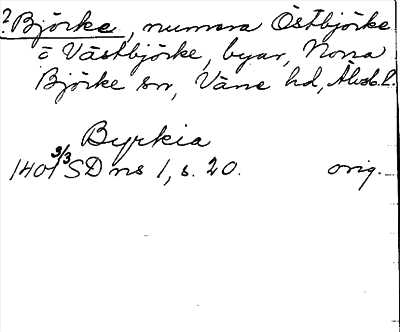 ?Björke, numera Östbjörke
o Västbjörke, byar, Norra
Björke sn, Väne hd, Älvsb. l.
Byrkia
1401 3/3 SD ns 1, s. 20. orig.